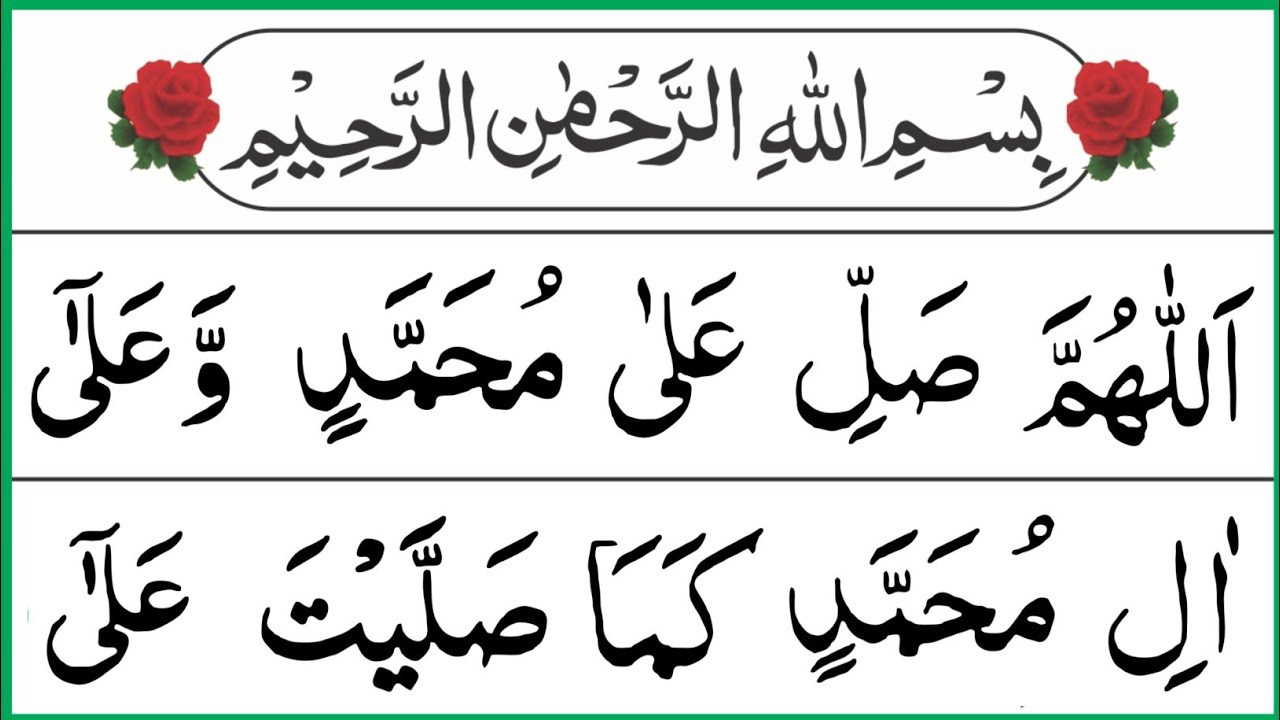 بِسْمِ اللهِ الرَّحْمٰنِ الرَّحِيْمِ
اَللّٰهُمَّ صَلِّ عَلٰى مُحَمَّدٍ وَّعَلٰٓى
اٰلِ مُحَمَّدٍ كَمَا صَلَّيْتَ عَلٰٓى